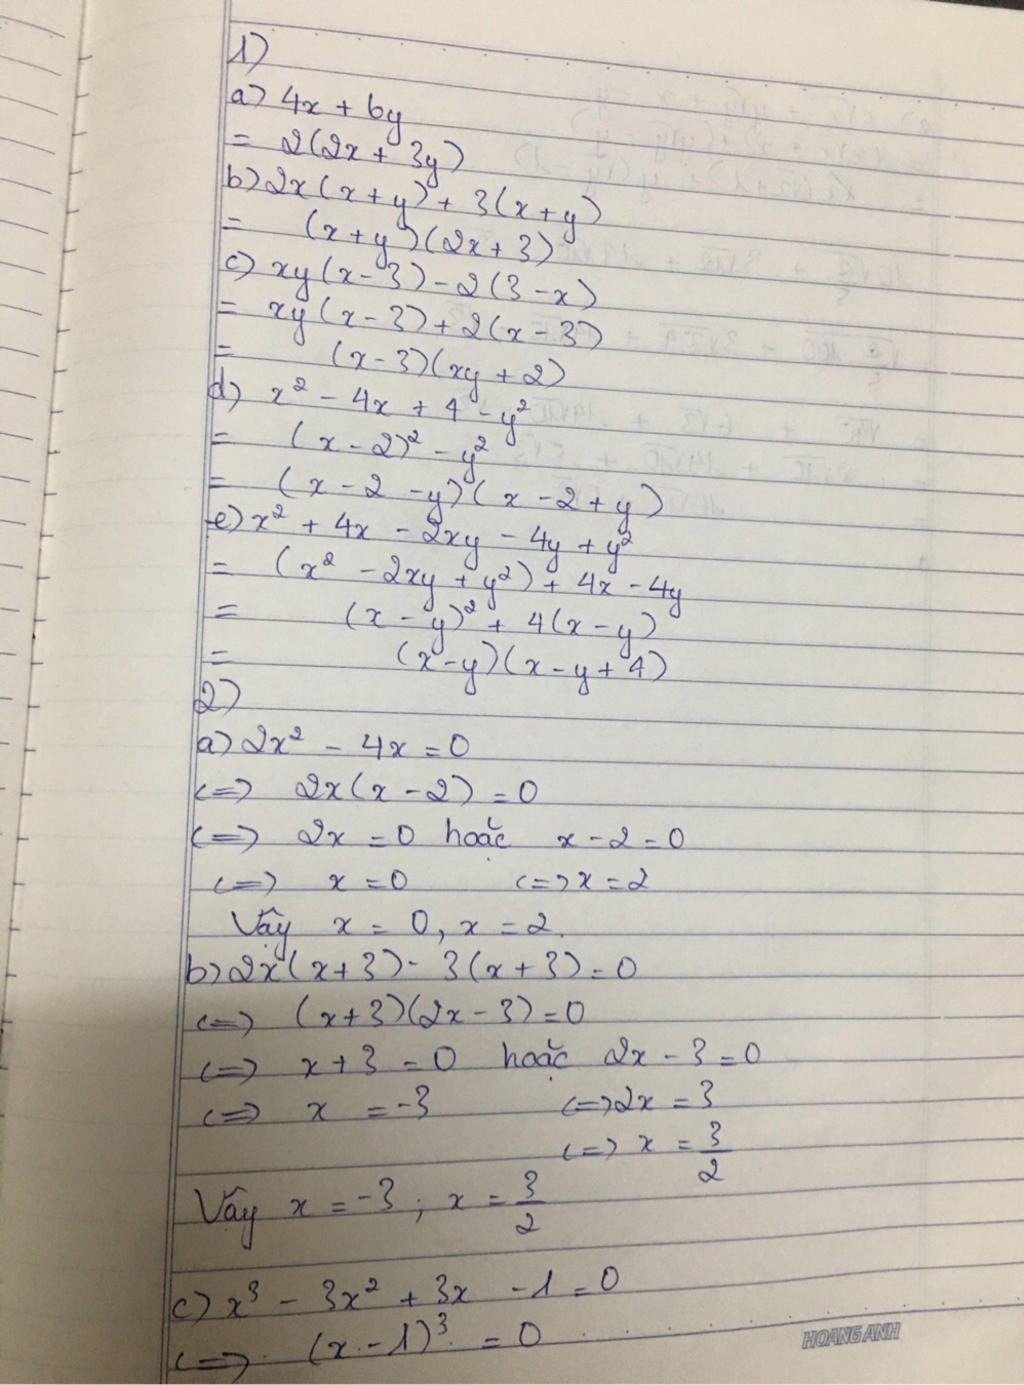 1)
a) 4x + 6y
= 2(2x + 3y)
b) 2x(x + y) + 3(x + y)
= (x + y)(2x + 3)
c) xy(x - 3) - 2(3 - x)
= xy(x - 3) + 2(x - 3)
= (x - 3)(xy + 2)
d) x² - 4x + 4 - y²
= (x - 2)² - y²
= (x - 2 - y)(x - 2 + y)
e) x² + 4x - 2xy - 4y + y²
= (x² - 2xy + y²) + 4x - 4y
= (x - y)² + 4(x - y)
= (x - y)(x - y + 4)
2)
a) 2x² - 4x = 0
<=> 2x(x - 2) = 0
<=> 2x = 0 hoặc x - 2 = 0
<=> x = 0 <=> x = 2
Vậy x = 0, x = 2.
b) 2x(x + 3) - 3(x + 3) = 0
<=> (x + 3)(2x - 3) = 0
<=> x + 3 = 0 hoặc 2x - 3 = 0
<=> x = -3 <=> 2x = 3
<=> x = 3/2
Vậy x = -3 ; x = 3/2
c) x³ - 3x² + 3x - 1 = 0
<=> (x - 1)³ = 0
HOANG ANH